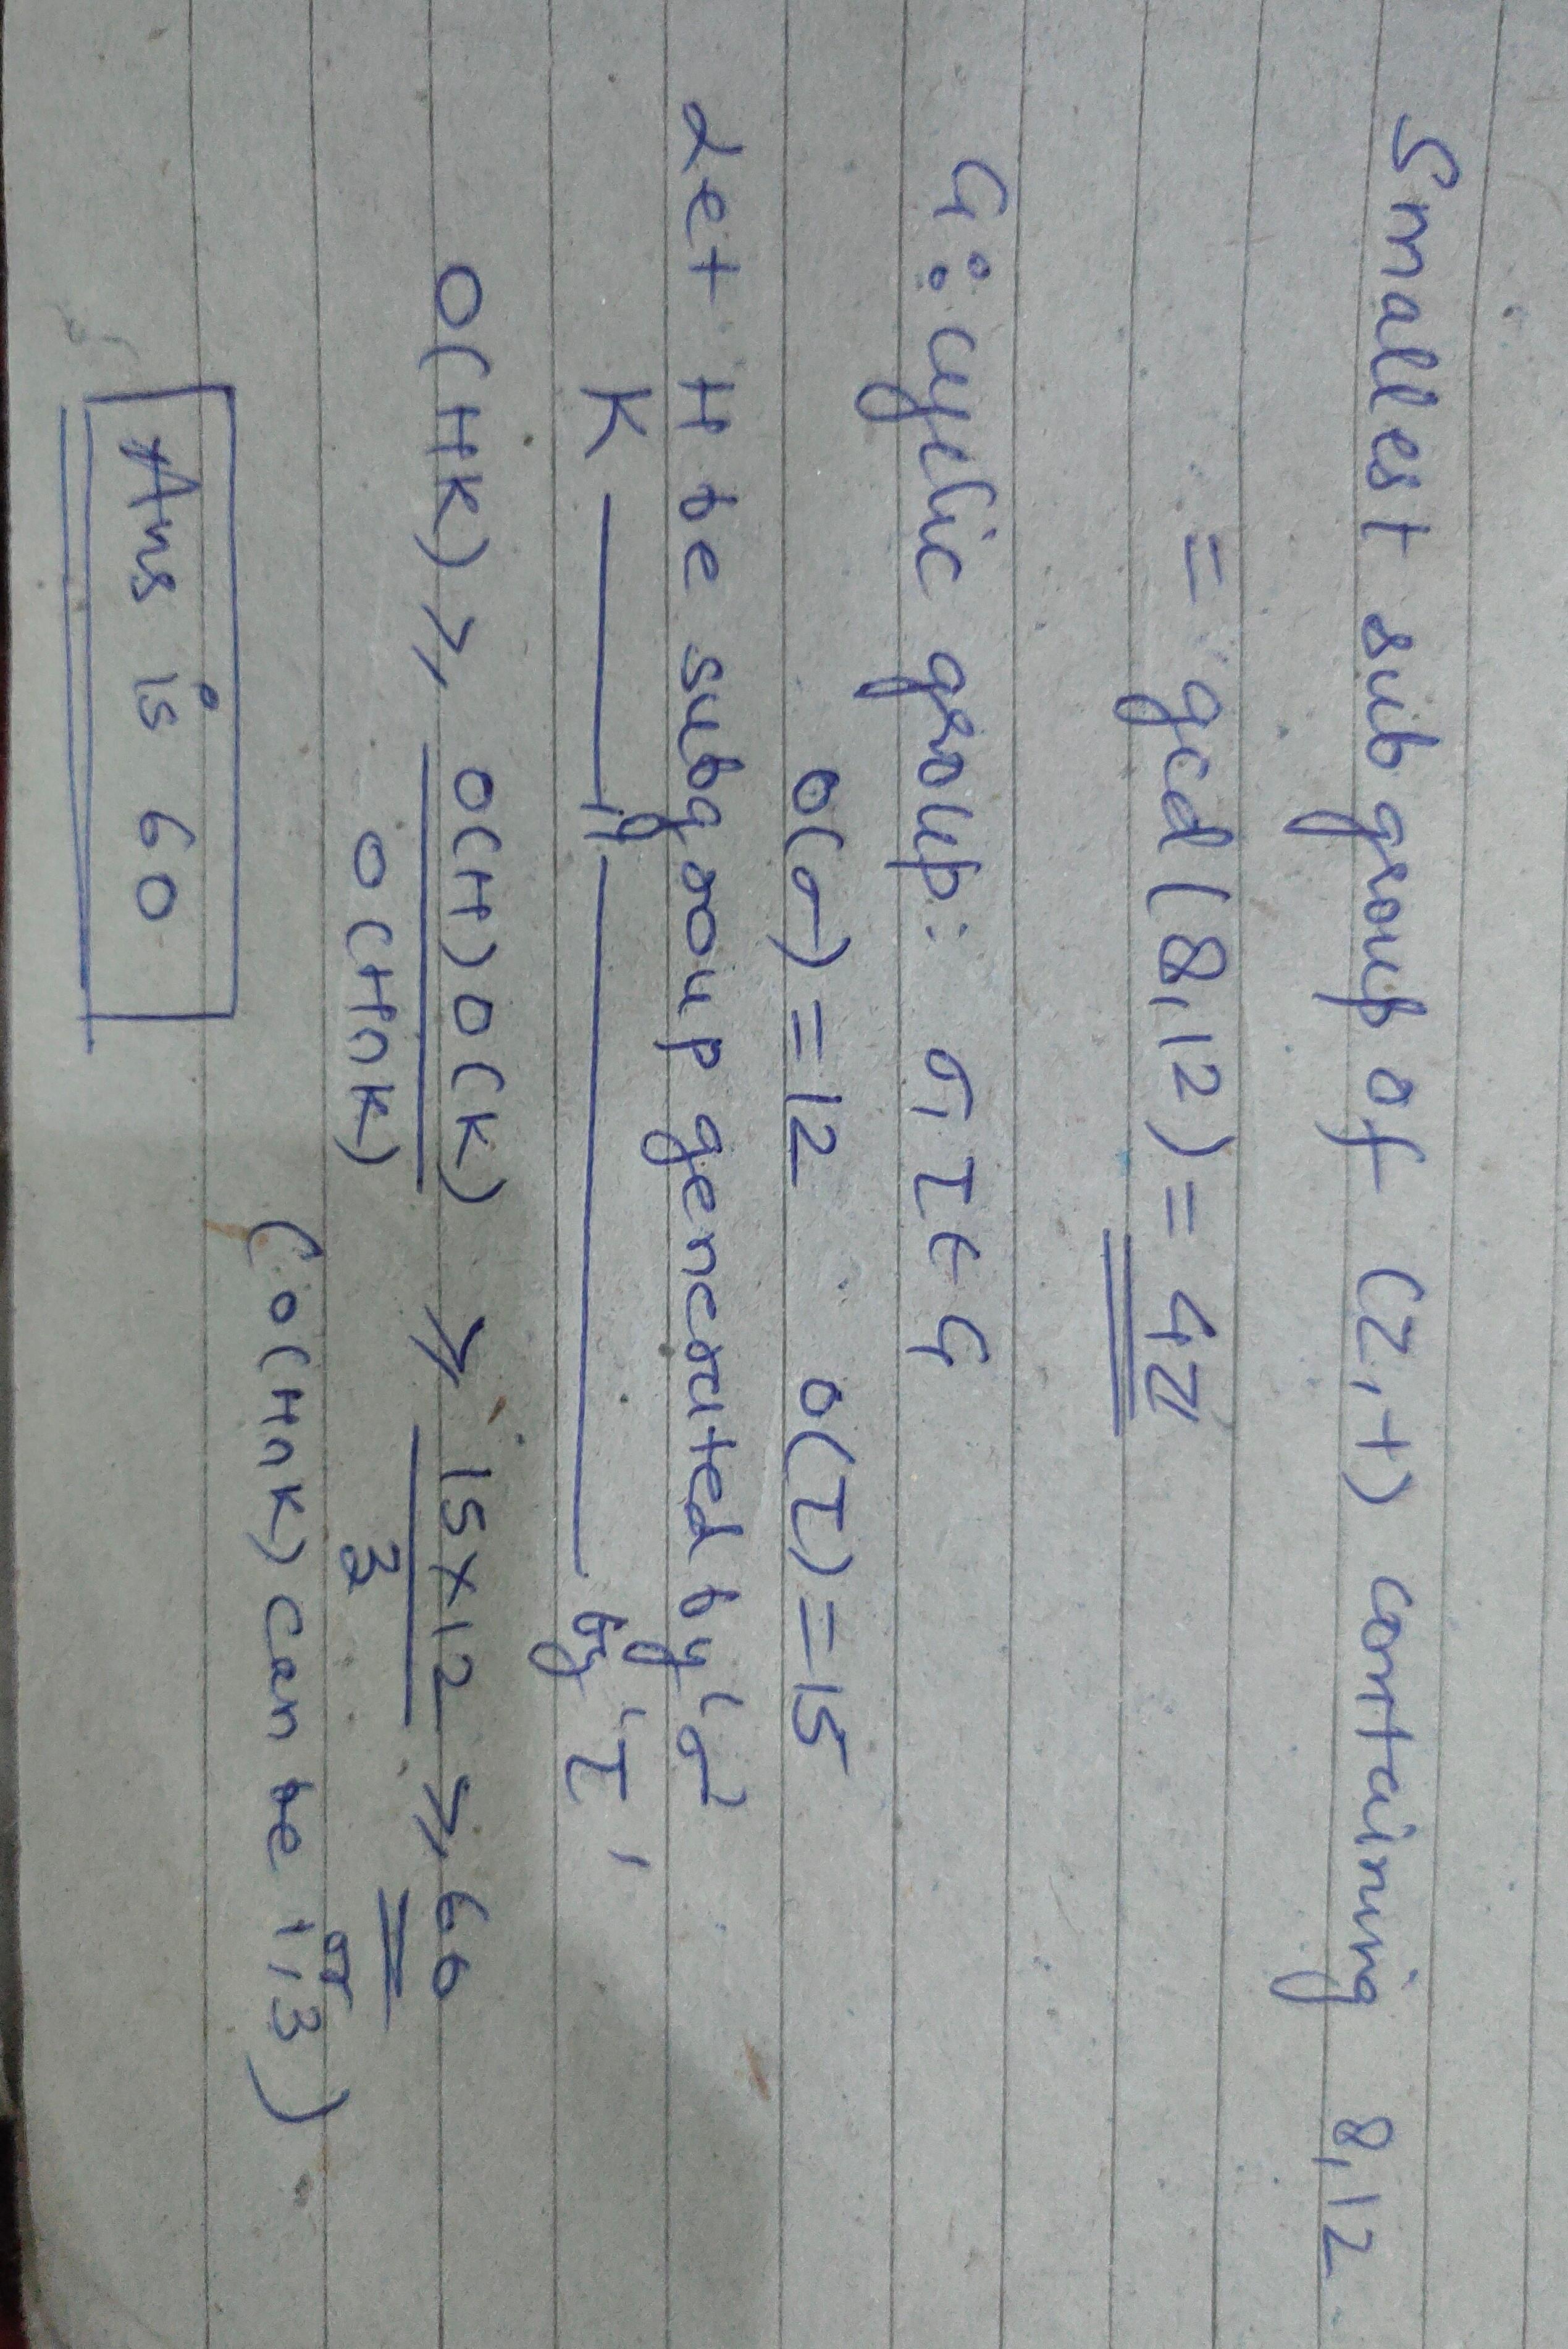 Smallest subgroup of (Z,+) containing 8,12
= gcd(8,12) = 4Z
G: cyclic group: σ, τ ∈ G
o(σ) = 12 o(τ) = 15
Let H be subgroup generated by 'σ'
K ——— 〃 ——— by 'τ'
O(HK) ≥ O(H)O(K) / O(H∩K) ≥ 15×12 / 3 ≥ 60
(O(H∩K) can be 1, or 3)
Ans is 60